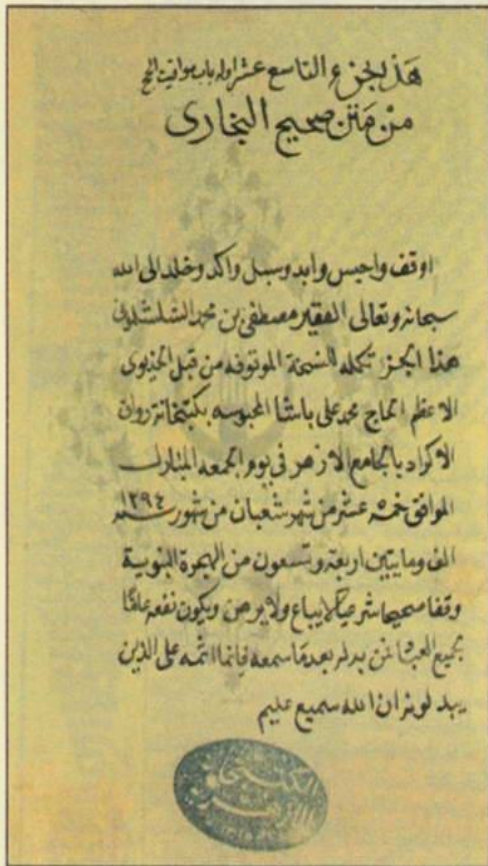 هذا الجزء التاسع عشر اوله باب مواقيت الحج
من متن صحيح البخارى
اوقف واحبس وابد وسبل واكد وخلد الى الله
سبحانه وتعالى الفقير مصطفى بن محمد الشلشلمونى
هذا الجزء تكمله للنسخة الموقوفه من قبل الخديوى
الاعظم الحاج محمد على باشا المحبوسه بكتبخانة رواق
الاكراد بالجامع الازهر فى يوم الجمعه المبارك
الموافق خمسة عشر من شهر شعبان من شهور سنه ١٢٩٤
الف ومايتين اربعة وتسعون من الهجرة النبوية
وقفا صحيحا شرعيا لا يباع ولا يرهن ويكون نفعه عاما
لجميع العباد فمن بدله بعد ما سمعه فانما اثمه على الذين
يبدلونه ان الله سميع عليم